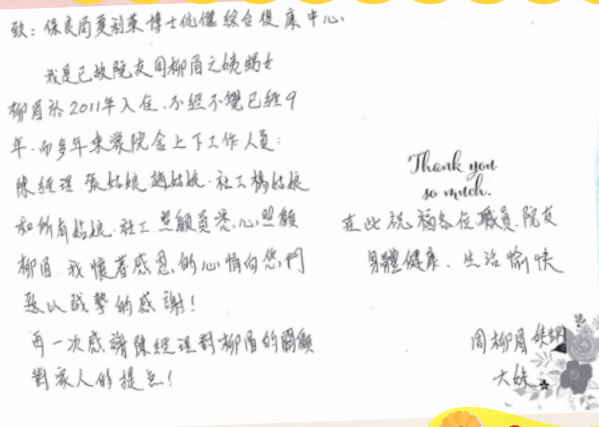 致：保良局夏利萊博士伉儷綜合復康中心.
我是已故院友周柳眉之姨甥女
柳眉於2011年入住.不經不覺已經9
年.而多年來蒙院舍上下工作人員:
陳經理.張姑娘.趙姑娘.社工楊姑娘
和所有姑娘.社工.照顧員悉心照顧
柳眉.我懷著感恩的心情向您們
致以誠摯的感謝!
再一次感謝陳經理對柳眉的關顧
對家人的提点!
Thank you
so much.
在此祝福各位職員.院友
身體健康.生活愉快
周柳眉姨甥
大妹